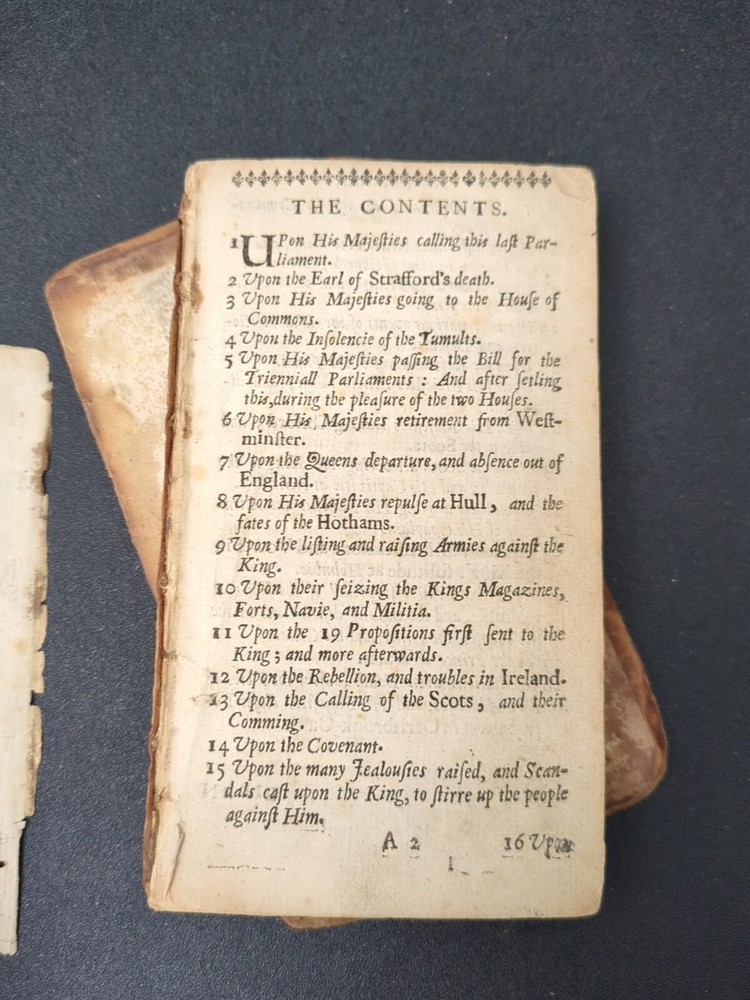 THE CONTENTS.
1 UPon His Majeſties calling this laſt Par-
liament.
2 Upon the Earl of Strafford's death.
3 Upon His Majeſties going to the Houſe of
Commons.
4 Upon the Inſolencie of the Tumults.
5 Upon His Majeſties paſſing the Bill for the
Trienniall Parliaments : And after ſetling
this, during the pleaſure of the two Houſes.
6 Upon His Majeſties retirement from Weſt-
minſter.
7 Upon the Queens departure, and abſence out of
England.
8 Upon His Majeſties repulſe at Hull, and the
fates of the Hothams.
9 Upon the liſting and raiſing Armies againſt the
King.
10 Upon their ſeizing the Kings Magazines,
Forts, Navie, and Militia.
11 Upon the 19 Propoſitions firſt ſent to the
King ; and more afterwards.
12 Upon the Rebellion, and troubles in Ireland.
13 Upon the Calling of the Scots, and their
Comming.
14 Upon the Covenant.
15 Upon the many Jealouſies raiſed, and Scan-
dals caſt upon the King, to ſtirre up the people
againſt Him.
A 2 16 Upon